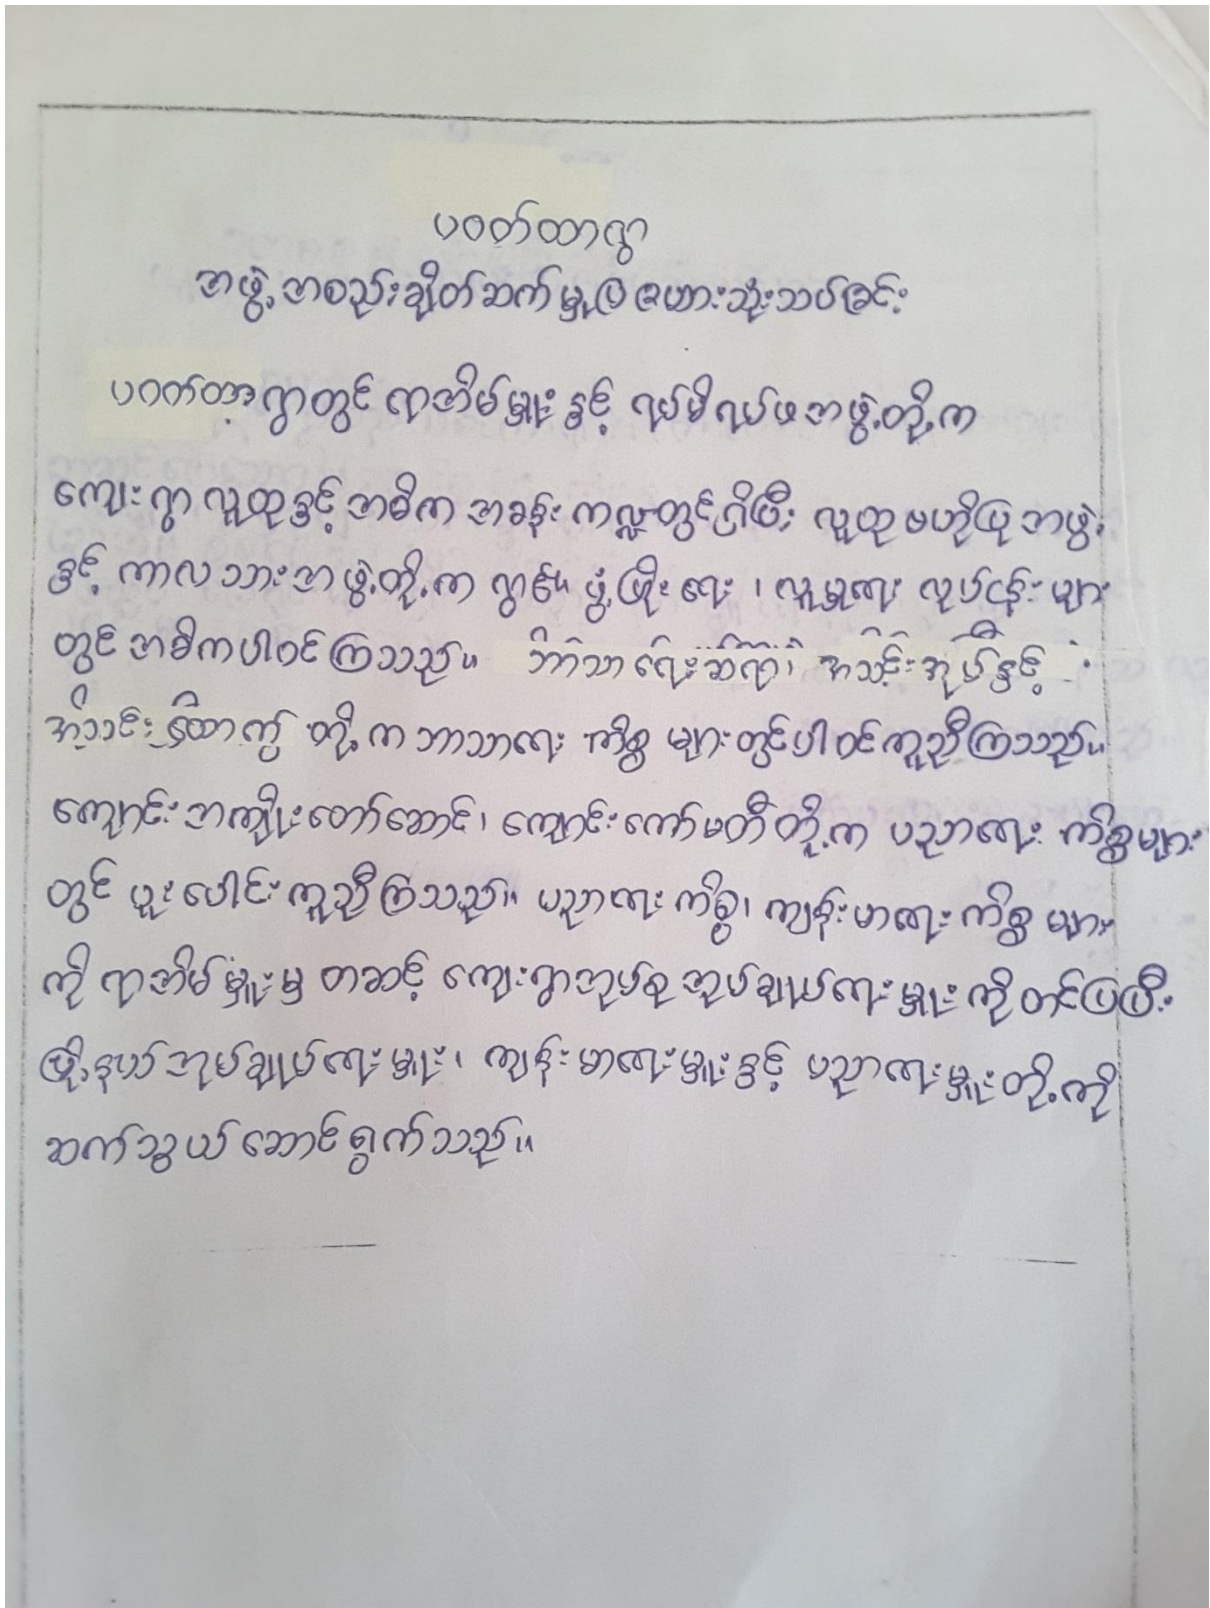 ပဝတ်ထာရွာ
အဖွဲ့အစည်းချိတ်ဆက်မှုပြဇယားသုံးသပ်ခြင်း
ပဝတ်ထာရွာတွင် ရာအိမ်မှူးနှင့် ရပ်မိရပ်ဖအဖွဲ့တို့က
ကျေးရွာ လူထုနှင့် အဓိက အခန်းကဏ္ဍတွင်ရှိပြီး လူထုဗဟိုပြုအဖွဲ့
နှင့် ကာလသားအဖွဲ့တို့က ရွာ၏ ဖွံ့ဖြိုးရေး၊ လူမှုရေး လုပ်ငန်းများ
တွင် အဓိကပါဝင်ကြသည်။ ဘာသာရေးဆရာ၊ အသင်းအုပ်နှင့်
အသင်းထောက် တို့က ဘာသာရေး ကိစ္စများတွင်ပါဝင်ကူညီကြသည်။
ကျောင်းအကျိုးတော်ဆောင်၊ ကျောင်းကော်မတီတို့က ပညာရေး ကိစ္စများ
တွင် ပူးပေါင်းကူညီကြသည်။ ပညာရေးကိစ္စ၊ ကျန်းမာရေးကိစ္စများ
ကို ရာအိမ်မှူးမှ တဆင့် ကျေးရွာအုပ်စုအုပ်ချုပ်ရေးမှူးကိုတင်ပြပြီး
မြို့နယ်အုပ်ချုပ်ရေးမှူး၊ ကျန်းမာရေးမှူးနှင့် ပညာရေးမှူးတို့ကို
ဆက်သွယ်ဆောင်ရွက်သည်။